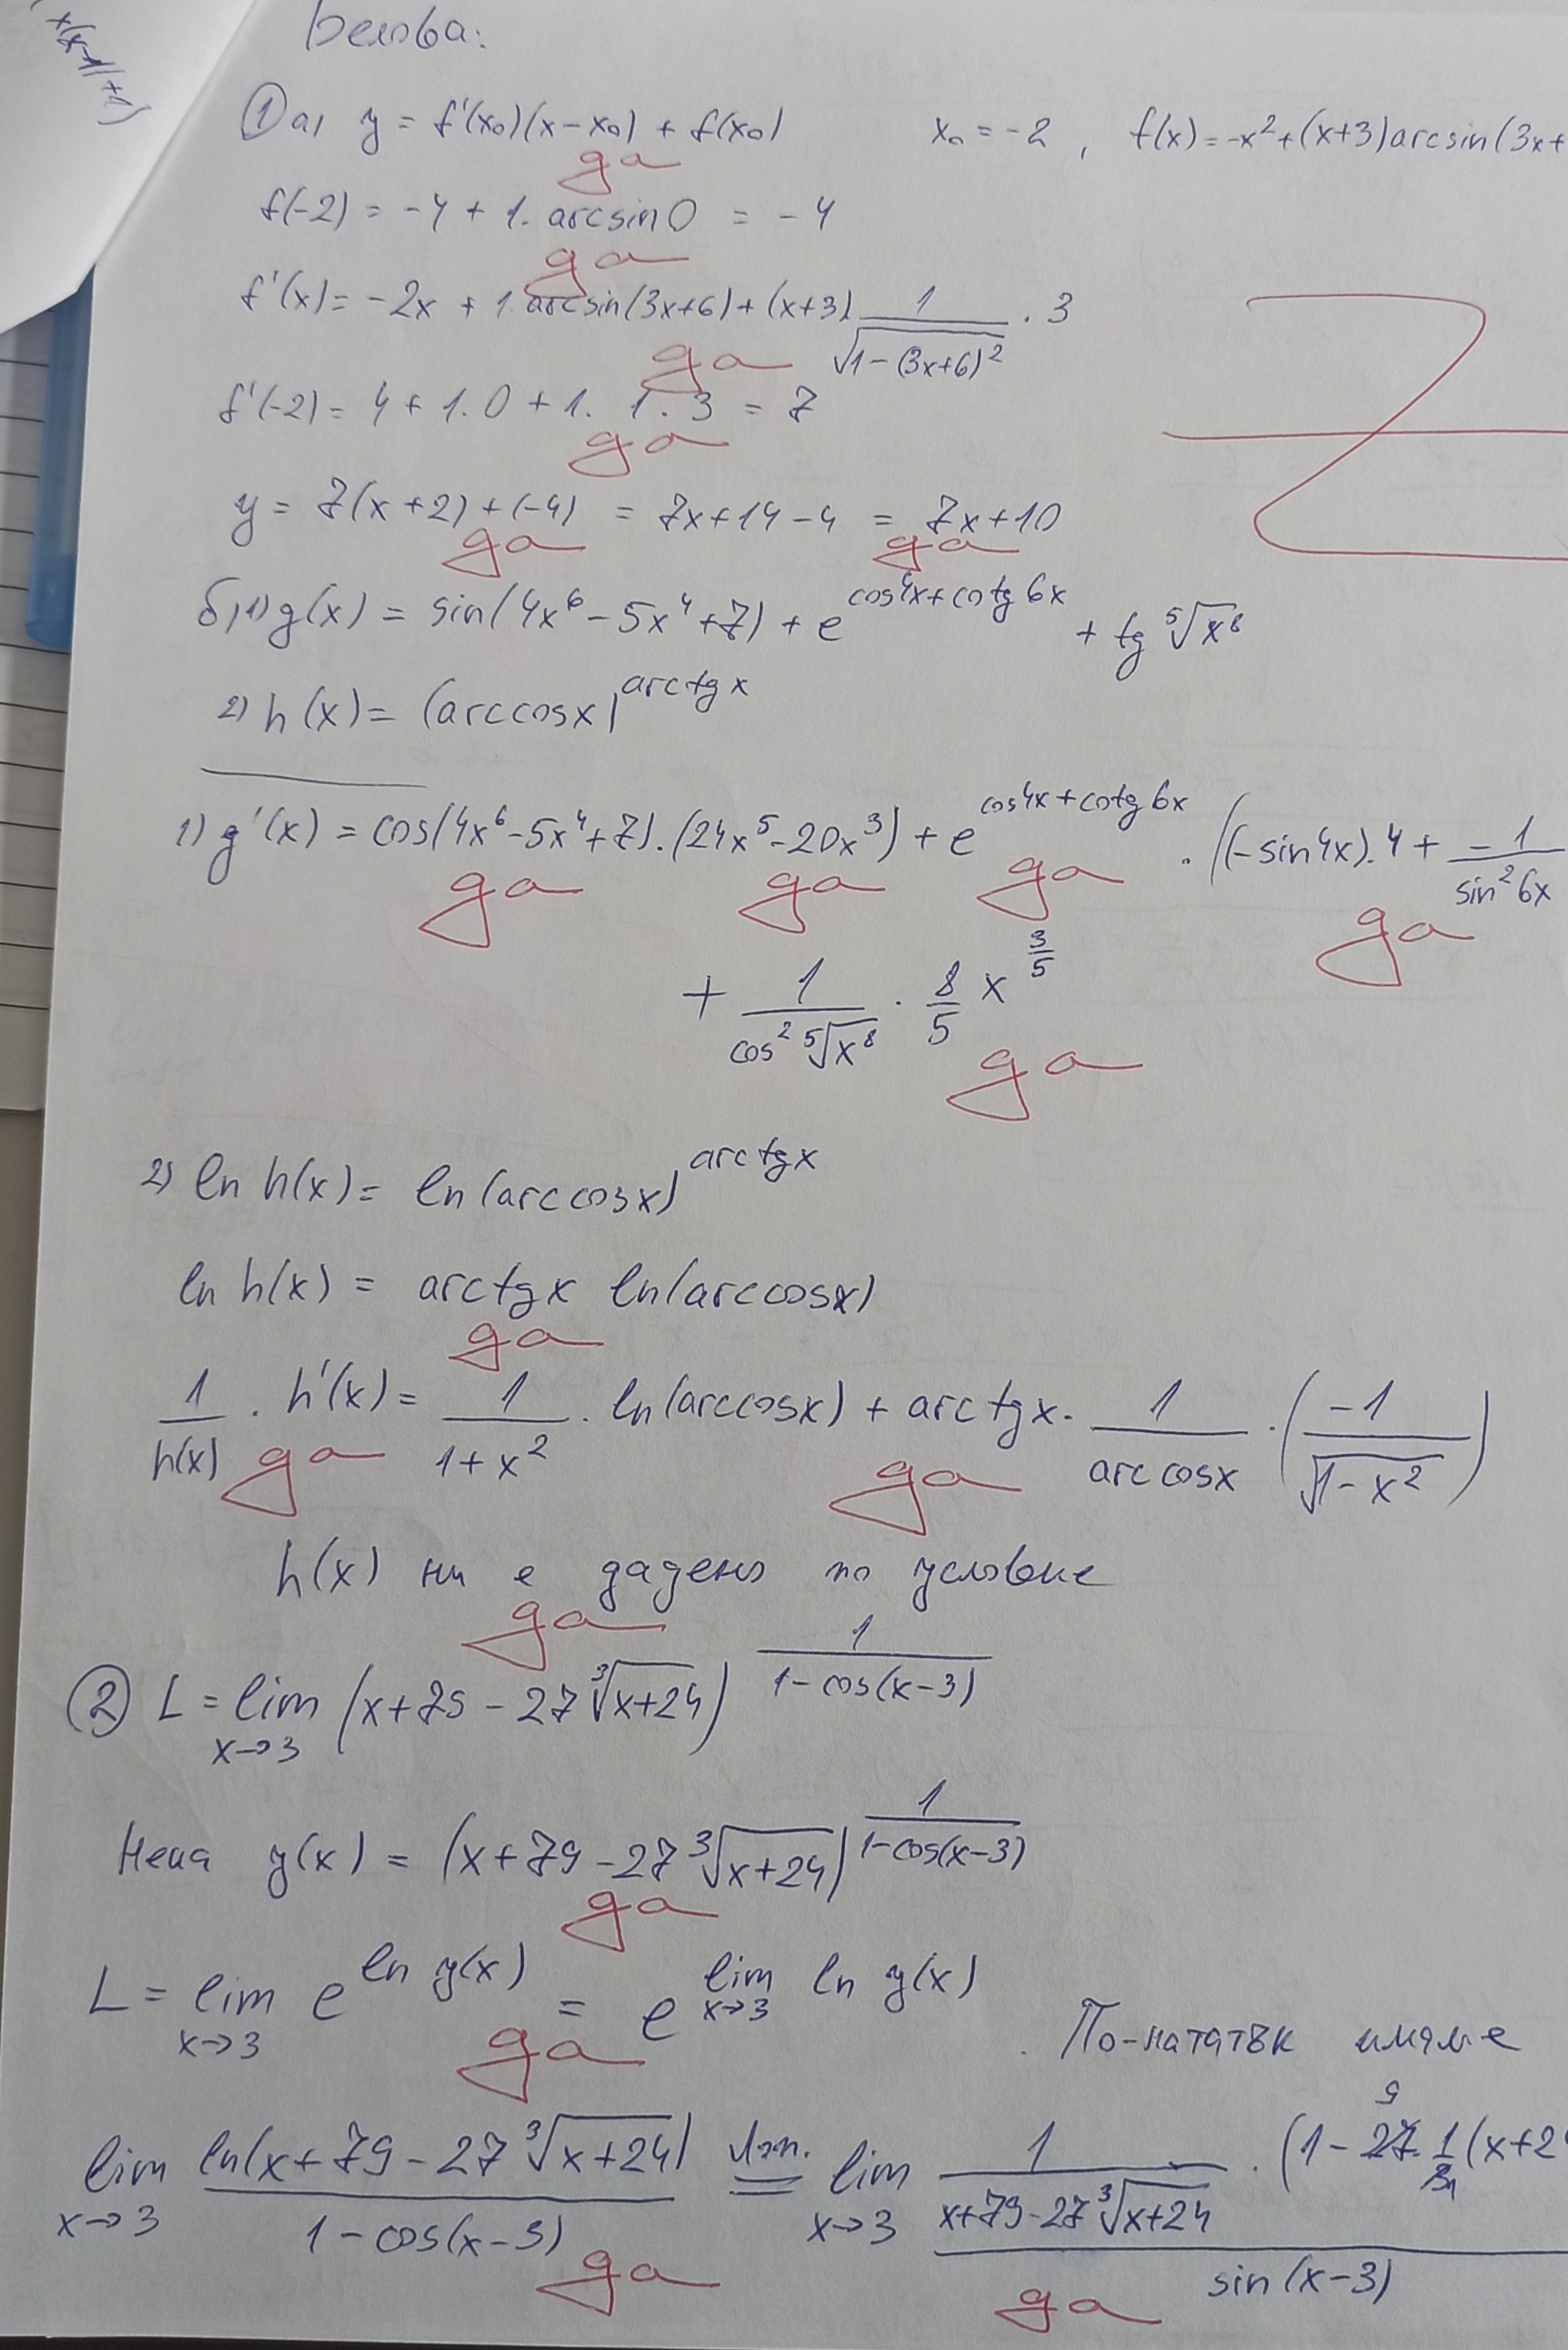 x(x-1)+1)
Белова:
① а) y = f'(x₀)(x-x₀) + f(x₀) x₀ = -2 , f(x) = -x² + (x+3) arcsin(3x+
да
f(-2) = -4 + 1. arcsin 0 = -4
да
f'(x) = -2x + 1. arcsin(3x+6) + (x+3) 1/√(1-(3x+6)²) . 3
да
f'(-2) = 4 + 1.0 + 1. 1. 3 = 7
да
y = 7(x+2) + (-4) = 7x+14-4 = 7x+10
да да
б) 1) g(x) = sin(4x⁶ - 5x⁴ + 7) + e^(cos4x+cotg6x) + tg ⁵√x⁸
2) h(x) = (arccosx)^(arctgx)
1) g'(x) = cos(4x⁶-5x⁴+7).(24x⁵-20x³) + e^(cos4x+cotg6x) . ((-sin4x).4 + -1/sin²6x
да да да да
+ 1/cos² ⁵√x⁸ . 8/5 x^(3/5)
да
2) ln h(x) = ln(arccosx)^(arctgx)
ln h(x) = arctgx ln(arccosx)
да
1/h(x) . h'(x) = 1/(1+x²) . ln(arccosx) + arctgx. 1/arccosx . (-1/√(1-x²))
да да
h(x) ни е дадено по условие
да
② L = lim x→3 (x+79 - 27 ³√(x+24))^(1/(1-cos(x-3)))
Нека y(x) = (x+79-27 ³√(x+24))^(1/(1-cos(x-3)))
да
L = lim x→3 e^(ln y(x)) = e^(lim x→3 ln y(x)) . По-нататък имаме
да
lim x→3 ln(x+79-27 ³√(x+24))/(1-cos(x-3)) Лоп. = lim x→3 1/(x+79-27 ³√(x+24)) . (1 - 27 9 . 1/3 1 (x+24 / sin(x-3)
да да